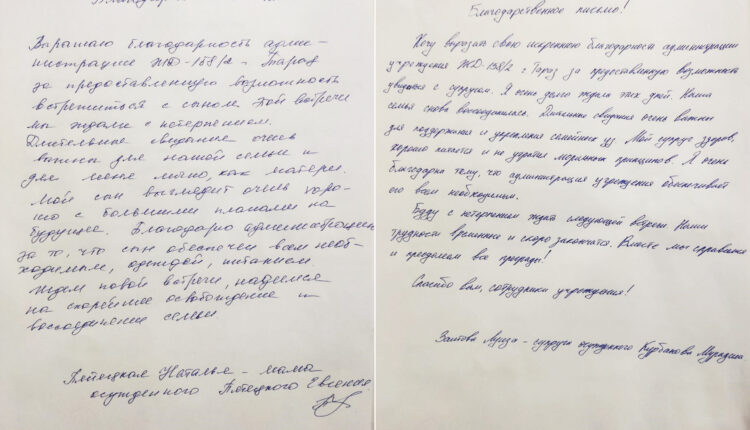 Выражаю благодарность адми-
нистрации ЖД-158/2 г Тараз
за предоставленную возможность
встретиться с сыном. Этой встречи
мы ждали с нетерпением.
Длительное свидание очень
важны для нашей семьи и
для меня лично, как матери.
Мой сын выглядит очень хоро-
шо с большими планами на
будущее. Благодарю администрацию
за то, что сын обеспечен всем необ-
ходимым, одеждой, питанием.
Ждем новой встречи, надеемся
на скорейшее освобождение и
воссоединение семьи
Наталья - мама
осужденного Евгения
Благодарственное письмо!
Хочу выразить свою искреннюю благодарность администрации
учреждения ЖД-158/2 г Тараз за предоставленную возможность
увидится с супругом. Я очень долго ждала этих дней. Наша
семья снова воссоединилась. Длительные свидания очень важны
для поддержания и укрепления семейных уз. Мой супруг здоров,
хорошо питается и не утратил моральных принципов. Я очень
благодарна тому, что администрация учреждения обеспечивает
его всем необходимым.
Буду с нетерпением ждать следующей встречи. Наши
трудности временные и скоро закончатся. Вместе мы справимся
и преодолеем все преграды!
Спасибо вам, сотрудники учреждения!
Луиза - супруга осужденного Курбанова